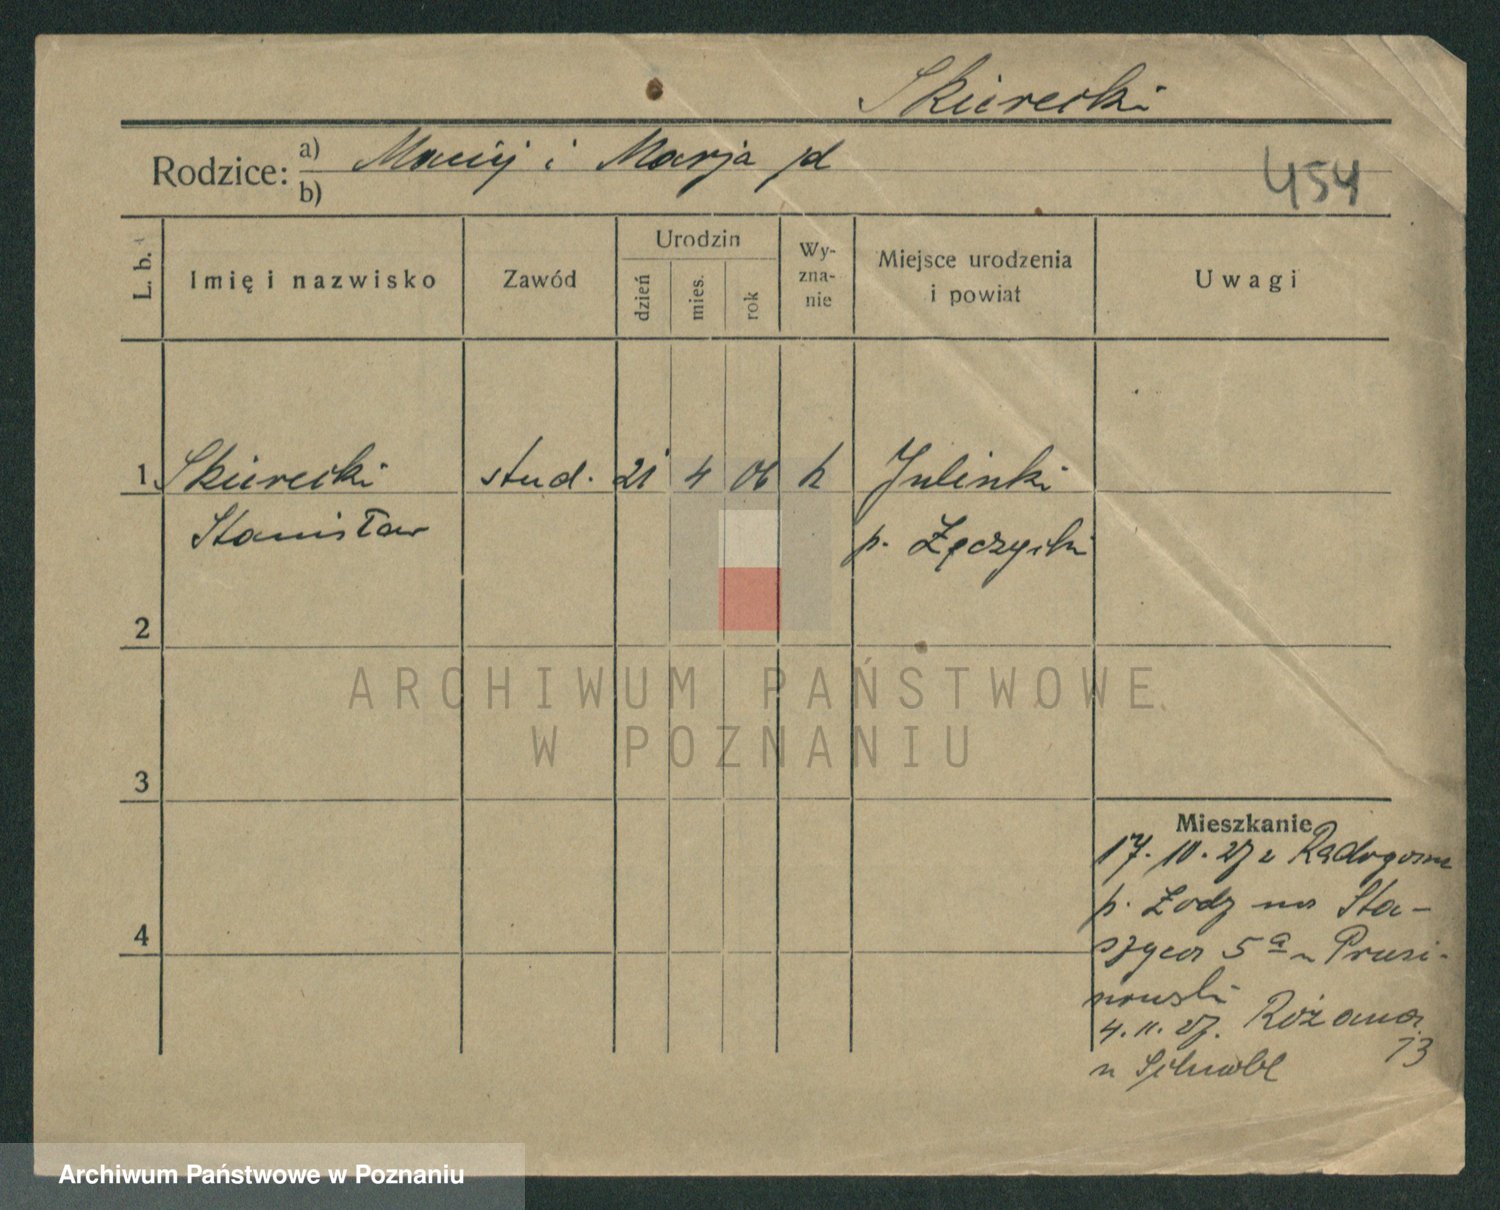 Skierecki
Rodzice: a) Maciej i Marja jd
b)
454
L. b. Imię i nazwisko Zawód Urodzin dzień mies. rok Wy-zna-nie Miejsce urodzenia i powiat Uwagi
1 Skierecki stud. 21 4 06 k Julinki
Stanisław p. Łęczycki
2
3
4
Mieszkanie
17. 10. 27 z Radogoszcz
p. Łodz na Sta-
szyca 5 a u Prusi-
nowski
4. 11. 27. Różana
13
u Schwabe
ARCHIWUM PAŃSTWOWE
W POZNANIU
Archiwum Państwowe w Poznaniu